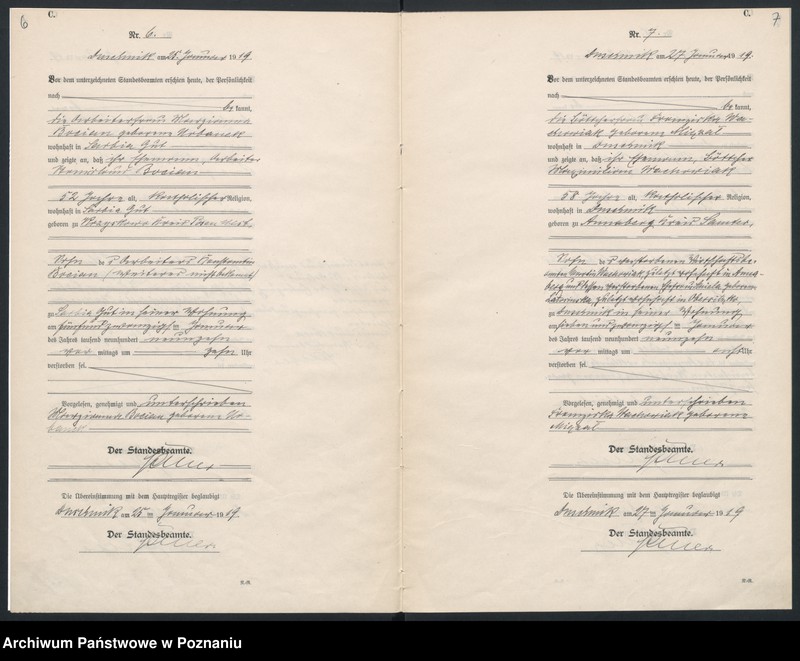 6
C.
Nr. 6.
Duschnik am 25. Januar 1919.
Vor dem unterzeichneten Standesbeamten erschien heute, der Persönlichkeit
nach
be kannt,
die Arbeiterfrau Marzianna
Bocian geborene Urbanek
wohnhaft in Sarbia Gut
und zeigte an, daß ihr Ehemann, Arbeiter
Bocian
52 Jahre alt, katholischer Religion,
wohnhaft in Sarbia Gut
geboren zu Kreis Posen West
Sohn des Arbeiters
Bocian (weiteres nicht bekannt)
zu Sarbia Gut in seiner Wohnung
am fünfundzwanzigsten Januar
des Jahres tausend neunhundert neunzehn
vor mittags um zehn Uhr
verstorben sei.
Vorgelesen, genehmigt und unterschrieben
Marzianna Bocian geborene Ur-
banek
Der Standesbeamte.
Die Übereinstimmung mit dem Hauptregister beglaubigt
Duschnik am 25ten Januar 1919.
Der Standesbeamte.
C.
7
Nr. 7.
Duschnik am 27 Januar 1919.
Vor dem unterzeichneten Standesbeamten erschien heute, der Persönlichkeit
nach
be kannt,
die Böttcherfrau Franziska
geborene
wohnhaft in Duschnik
und zeigte an, daß ihr Ehemann, Böttcher
Maximilian
58 Jahre alt, katholischer Religion,
wohnhaft in Duschnik
geboren zu Annaberg Kreis Samter,
Sohn des verstorbenen
zuletzt wohnhaft in Anna-
berg und dessen verstorbenen Ehefrau geborene
zuletzt wohnhaft in
zu Duschnik in seiner Wohnung
am siebenundzwanzigsten Januar
des Jahres tausend neunhundert neunzehn
vor mittags um acht Uhr
verstorben sei.
Vorgelesen, genehmigt und unterschrieben
Franziska geborene
Der Standesbeamte.
Die Übereinstimmung mit dem Hauptregister beglaubigt
Duschnik am 27ten Januar 1919
Der Standesbeamte.
Archiwum Państwowe w Poznaniu